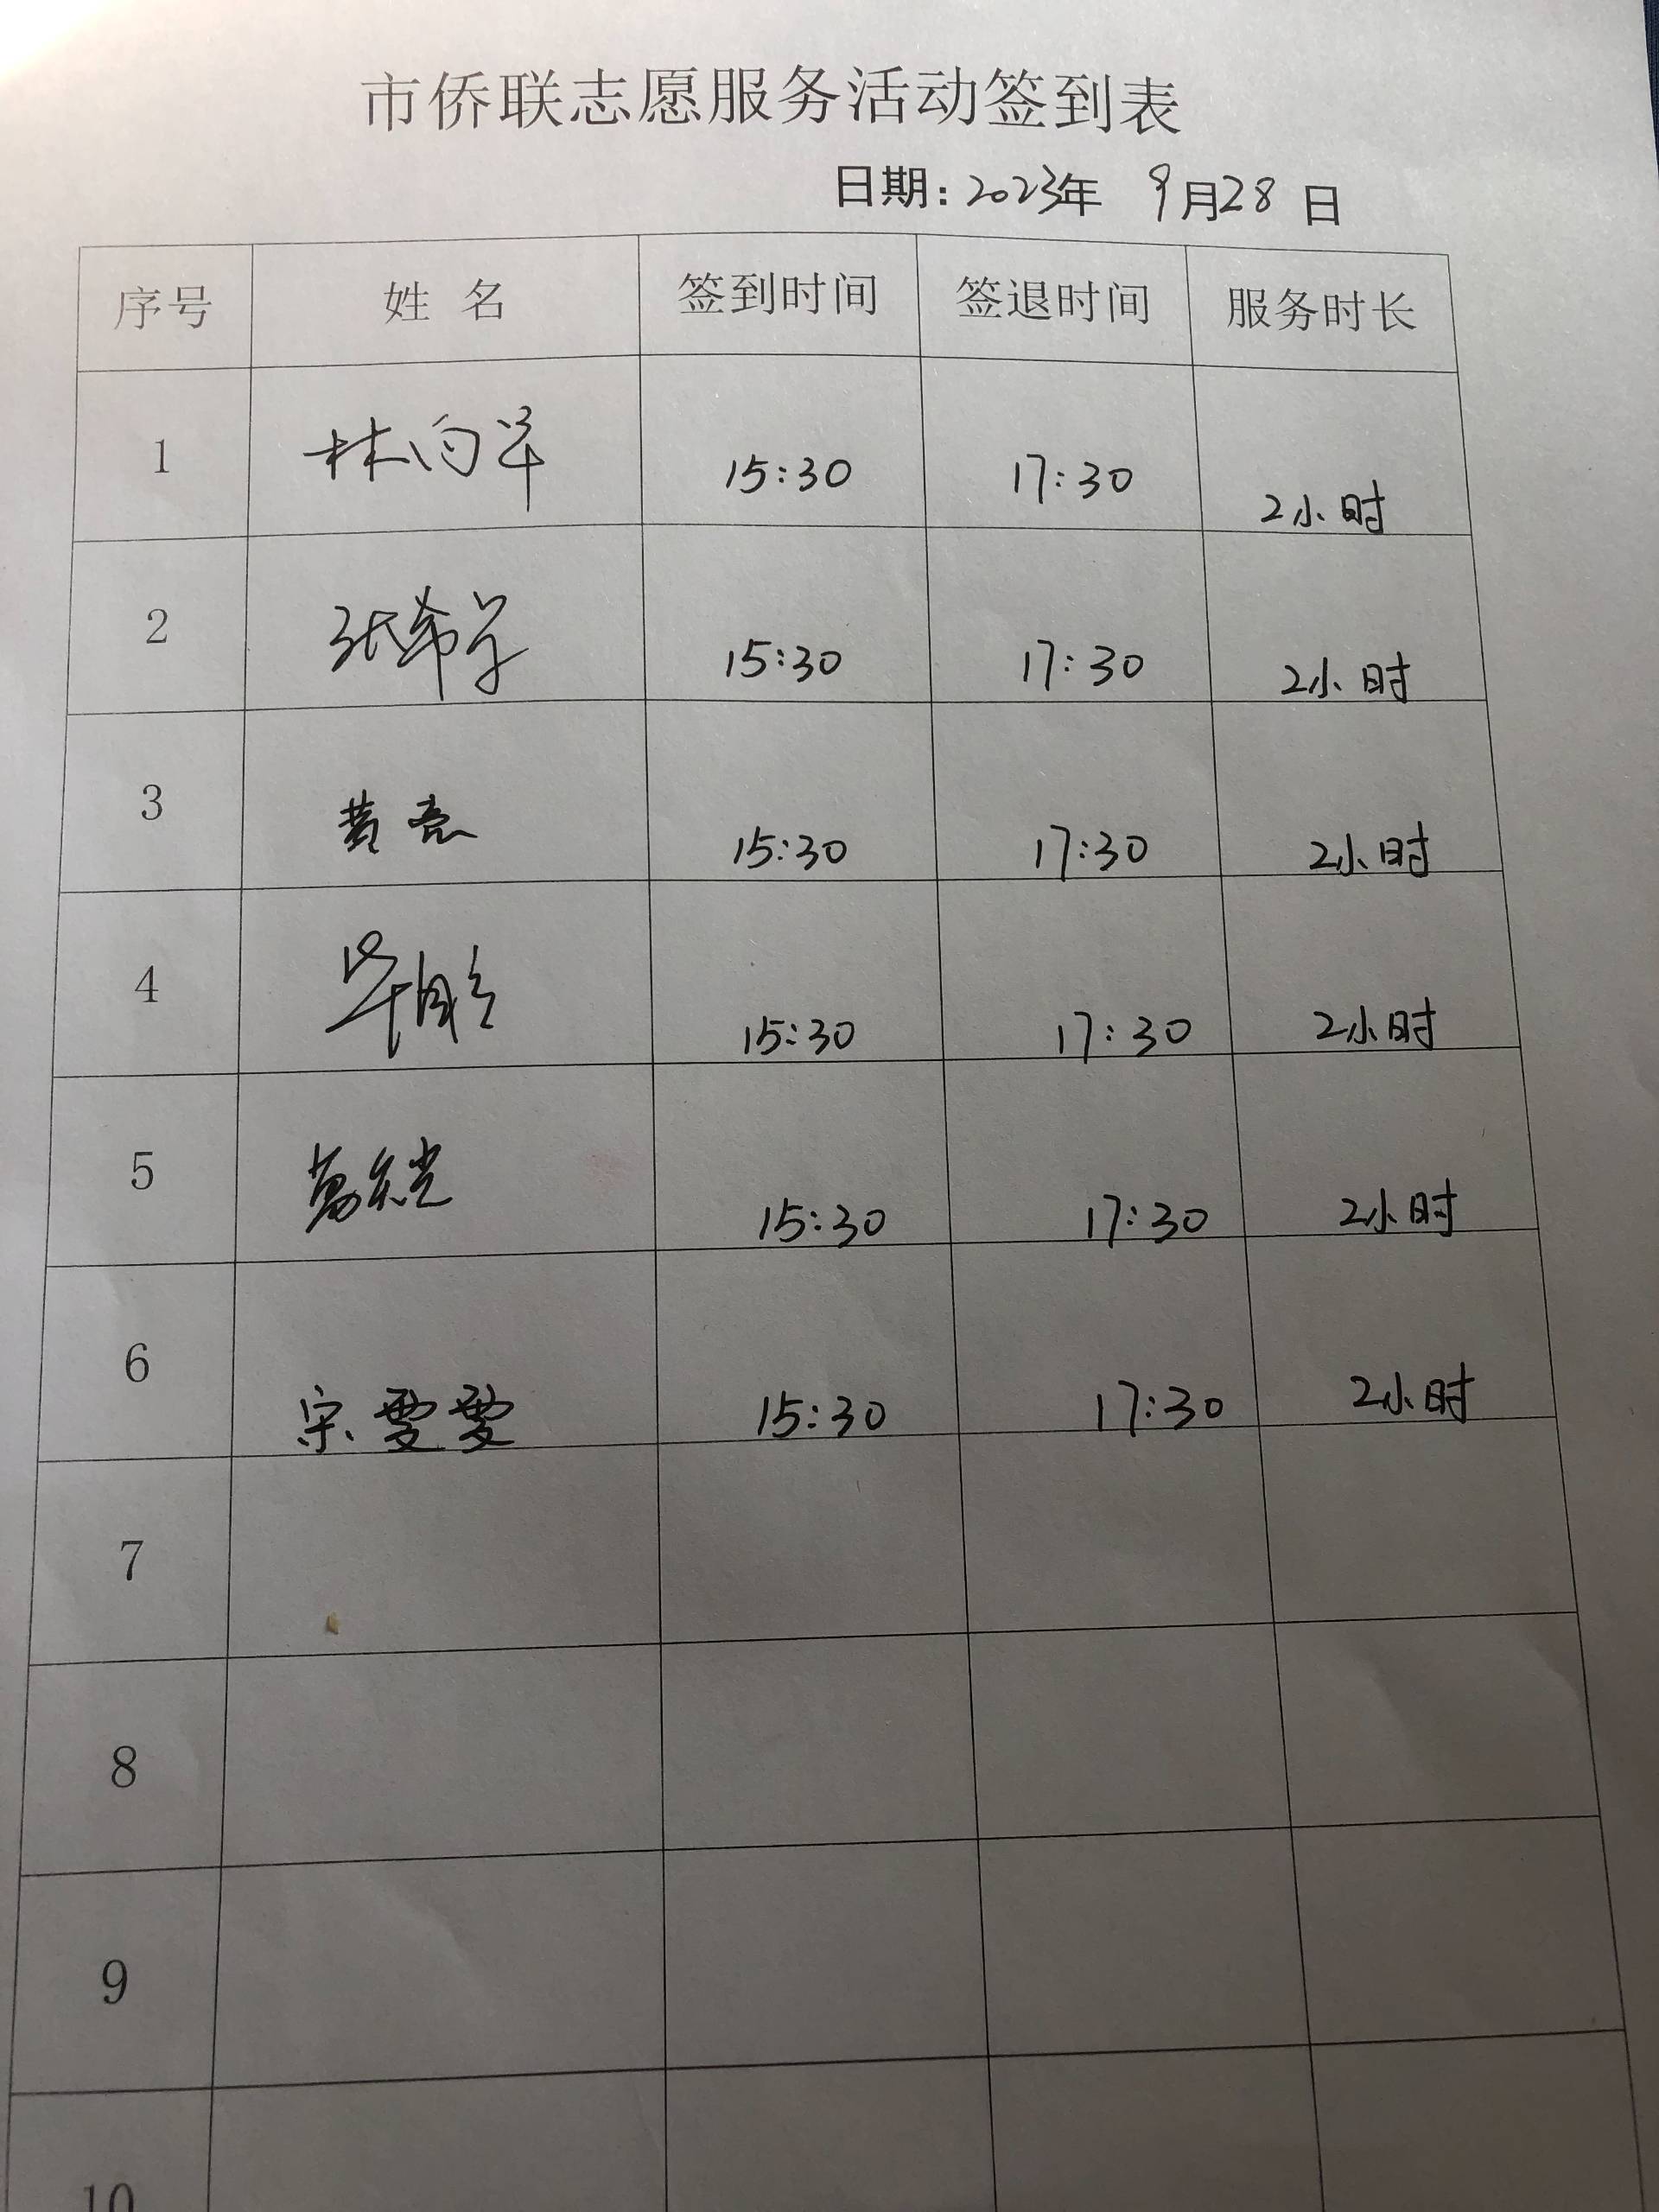 市侨联志愿服务活动签到表
日期：2023年 9月28日
序号 姓 名 签到时间 签退时间 服务时长
1 林向 15:30 17:30 2小时
2 张希 15:30 17:30 2小时
3 黄亮 15:30 17:30 2小时
4 15:30 17:30 2小时
5 15:30 17:30 2小时
6 宋雯雯 15:30 17:30 2小时
7
8
9
10